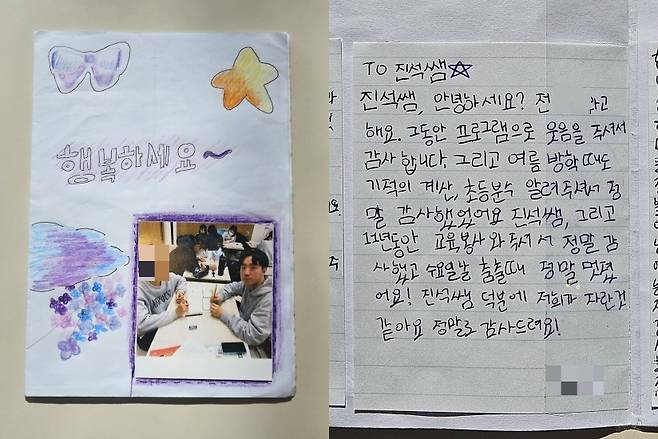 행복하세요~
TO 진석쌤☆
진석쌤, 안녕하세요? 전 라고
해요. 그동안 프로그램으로 웃음을 주셔서
감사합니다. 그리고 여름 방학때도
기적의 계산, 초등분수 알려주셔서 정
말 감사했었어요 진석쌤, 그리고
1년동안 교육봉사 와주셔서 정말 감
사했고 수요일날 춤출때 정말 멋졌
어요! 진석쌤 덕분에 저희가 자란것
같아요 정말로 감사드려요!